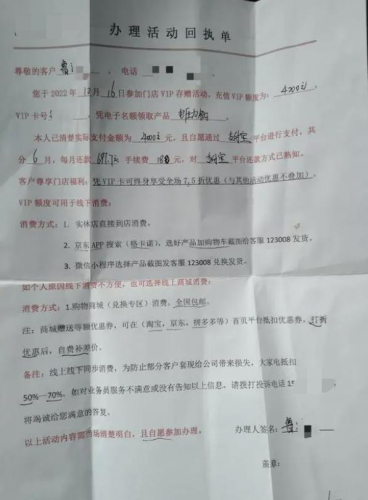 办理活动回执单
尊敬的客户 鲁 ，电话
您于 2022 年 12 月 16 日参加门店 VIP 存赠活动，充值 VIP 额度为：4000元
VIP 卡号： ，凭电子名额领取产品
本人已清楚实际支付金额为 4000元 元，且自愿通过 平台进行支付，其
分 6 月，每月还款 元 手续费 元，对 平台还款方式已熟知。
客户尊享门店福利：凭 VIP 卡可终身享受全场 7.5 折优惠（与其他活动优惠不叠加）
VIP 额度可用于线下消费：
消费方式：1. 实体店直接到店消费。
2. 京东 APP 搜索（格卡诺），选好产品加购物车截图给客服 123008 发货。
3. 微信小程序选择产品截图发客服 123008 兑换发货。
如个人原因线下消费不方便，也可选择线上商城消费：
消费方式：1.购物商城（兑换专区）消费，全国包邮。
注：商城赠送等额优惠券，可在（淘宝，京东，拼多多等）首页平台抵扣优惠券，打折
优惠后，自费补差价。
备注：线上线下同步消费，为防止部分客户套现给公司带来损失，大家电抵扣
50%—70%，如对业务员服务不满意或没有告知以上信息，请拨打投诉电话 1
将竭诚给您满意的答复。
以上活动内容需当场清楚明白，且自愿参加办理。
办理人签名：鲁
盖章：